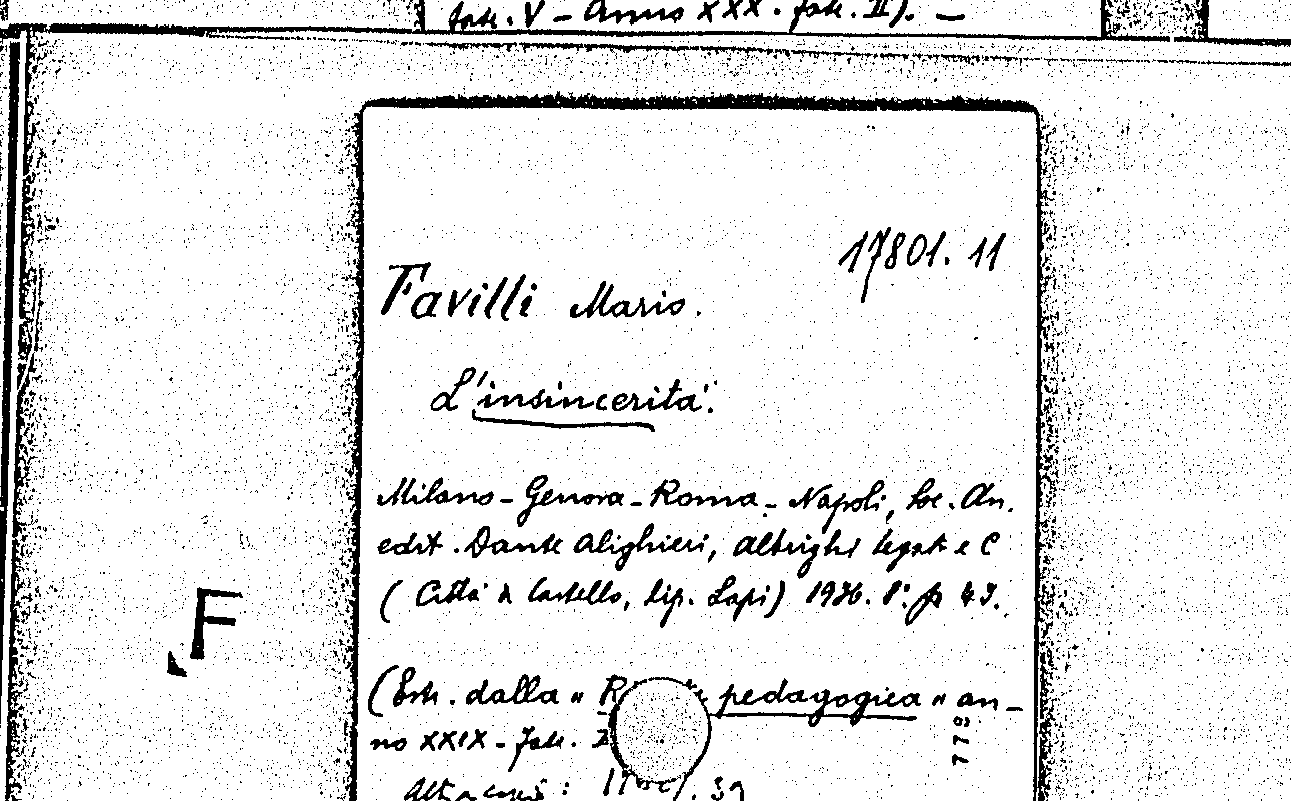 fasc. V - Anno XXX. fasc. II). -
17801. 11
Favilli Mario.
L'insincerità.
Milano - Genova - Roma - Napoli, Soc. An.
edit. Dante Alighieri, Albrighi Segati e C
(Città di Castello, tip. Lapi) 1936. 8°. p. 43.
F
(Estr. dalla " pedagogica " an-
no XXIX - fasc.
779
Altra copia: